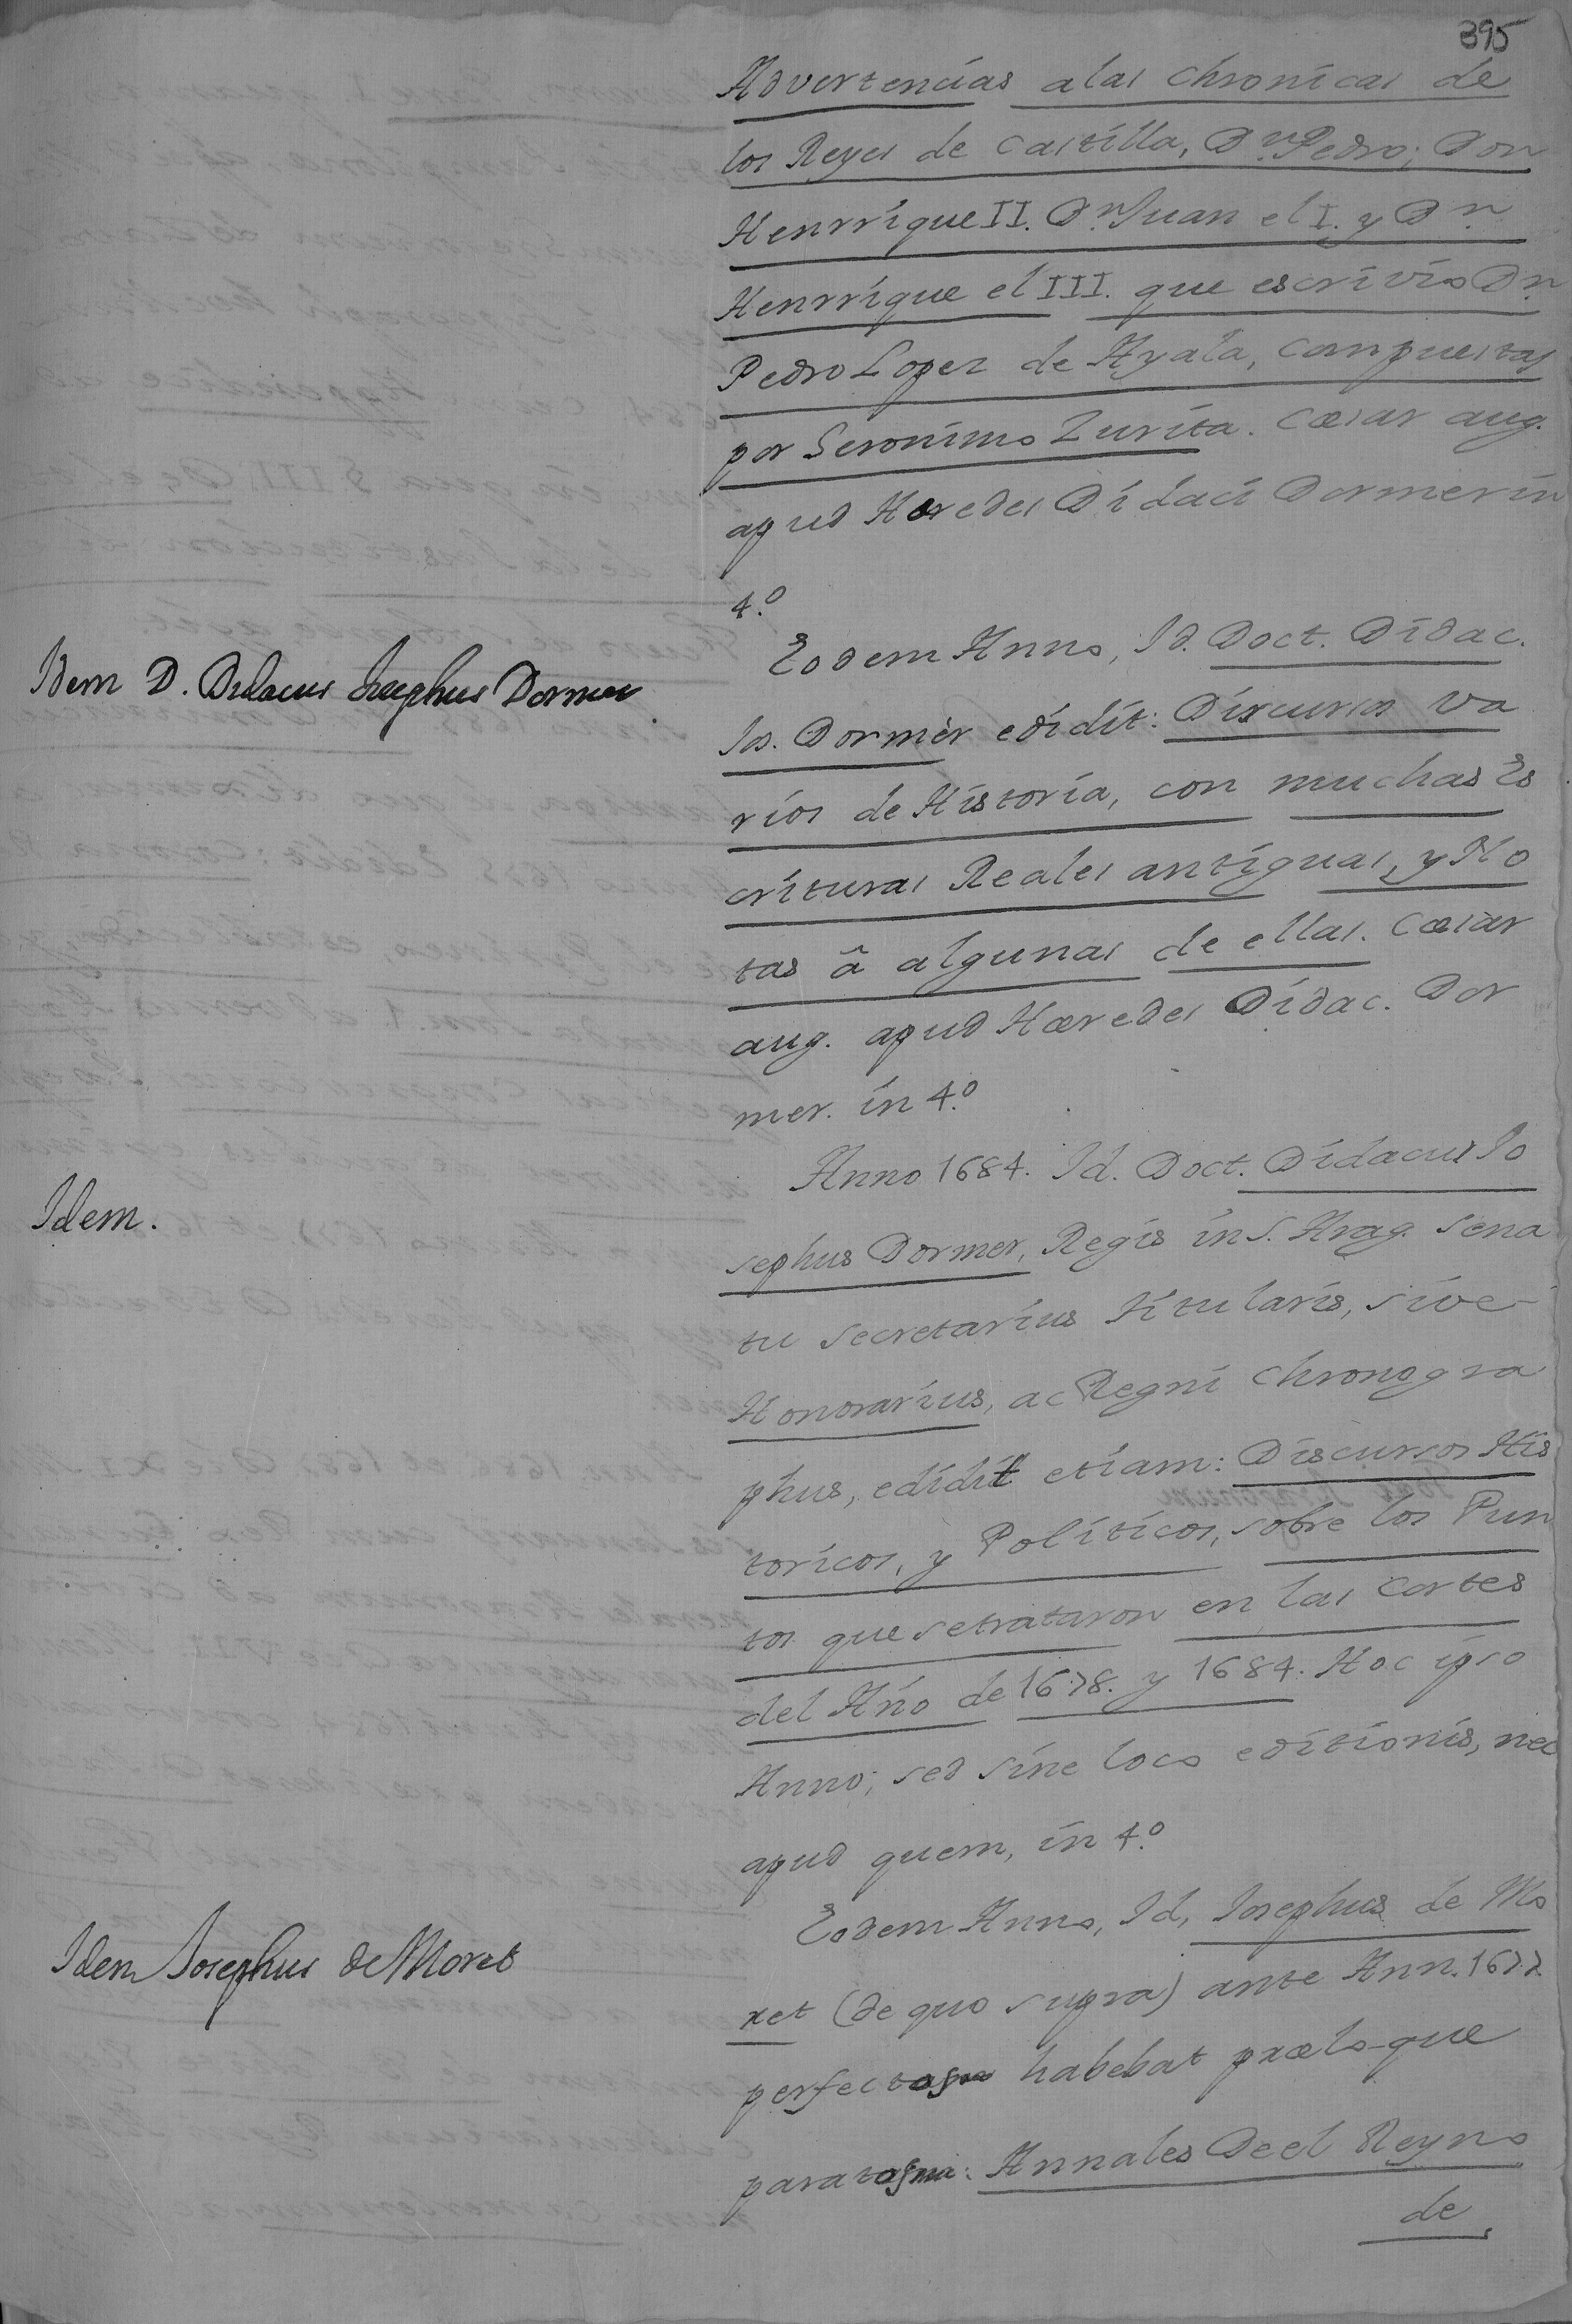 395
Advertencias alas Chronicas de
los Reyes de Castilla, Dn. Pedro; Don
Henrrique II. Dn. Juan el I. y Dn.
Henrrique el III. que escrivio Dn.
Pedro Lopez de Ayala, compuestas
por Geronimo Zurita. Cæsar aug.
apud Hæredes Didaci Dormer in
4.º
Idem D. Didacus Josephus Dormer
Eodem Anno, Id. Doct. Didac.
Jos. Dormèr edidit: Discursos va
rios de Historia, con muchas Es
crituras Reales antiguas, y No
tas â algunas de ellas. Cæsar
aug. apud Hæredes Didac. Dor
mer. in 4.º
Idem.
Anno 1684. Id. Doct. Didacus Jo
sephus Dormer, Regis in S. Arag. Sena
tu Secretarius titularis, sive
Honorarius, ac Regni Chronogra
phus, edidit etiam: Discursos His
toricos, y Politicos, sobre los Pun
tos que setrataron en las Cortes
del Año de 1678. y 1684. Hoc ipso
Anno; sed sine loco editionis, nec
apud quem, in 4.º
Idem Josephus de Moret
Eodem Anno, Id, Josephus de Mo
ret (de quo supra) ante Ann. 1677.
habebat prælo-que
Annales Deel Reyno
de